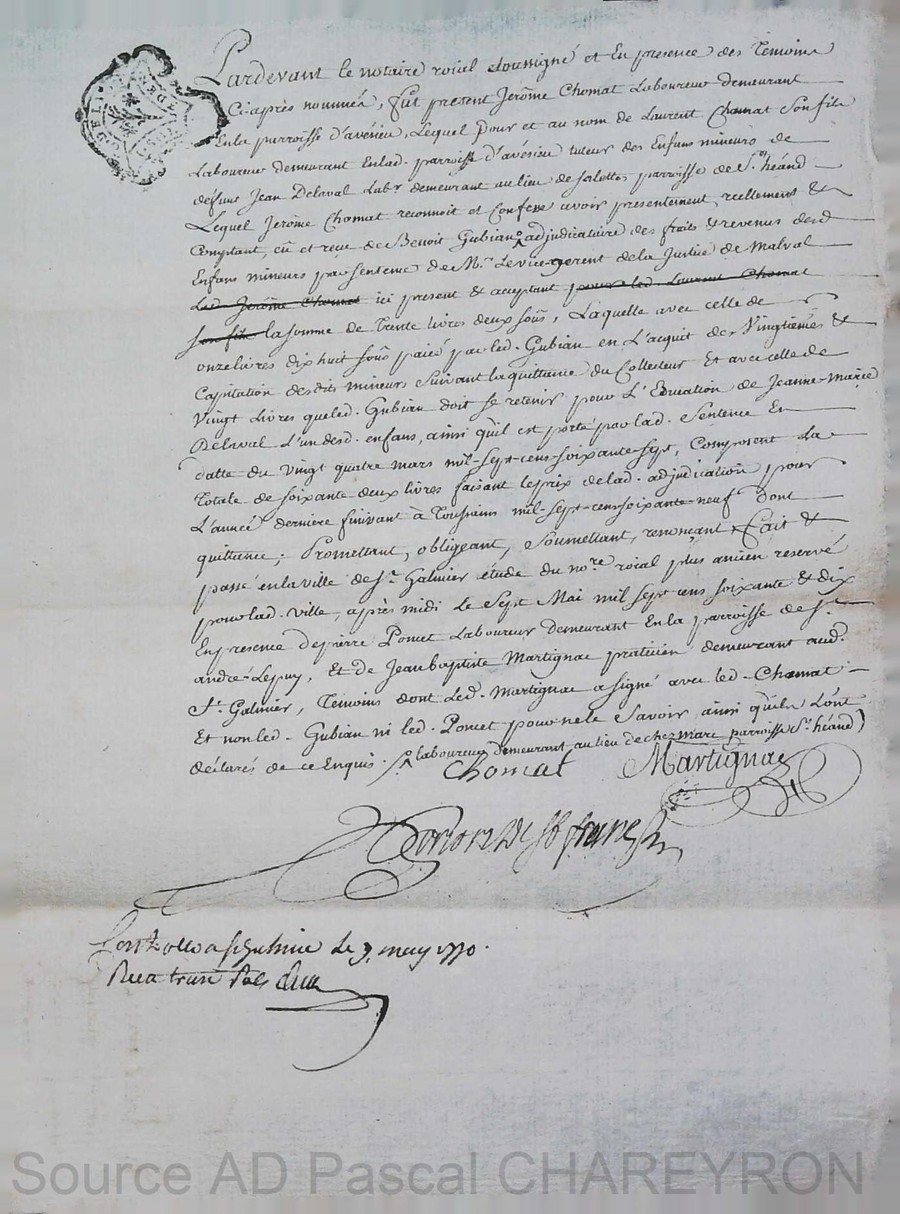 Pardevant le notaire roial soussigné et En presence des Temoins
Ci-après nommés, fut present Jerôme Chomat Laboureur demeurant
En la parroisse d'aveisieu, Lequel Pour et au nom de Laurent Chomat Son fils
Laboureur demeurant En lad. parroisse d'avésieu tuteur des Enfans mineurs de
défunt Jean Delaval Labr demeurant au lieu de parroisse de St. héand
Lequel Jerôme Chomat reconnoit et Confesse avoir presentement, reellement &
Comptant, eû et reçu de Benoit Gubian adjudicataire des fruits & revenus desd
Enfans mineurs par Sentence de Mr. Le vicegerent de la Justice de Malval
Led Jerôme Chomat ici present & acceptant pour led Laurent Chomat
son fils la somme de Trente livres deux sous, Laquelle avec celle de
onze livres dix huit sous paiés par led. Gubian en L'acquit des Vingtiémes &
Capitation desdits mineurs Suivant la quittance du Collecteur Et avec celle de
Vingt Livres que led. Gubian doit se retenir pour L'Education de Jeanne-Marie
Delaval L'un desd. enfans, ainsi qu'il est porté par lad. Sentence En
datte du Vingt quatre mars mil-sept-cens-soixante-sept, Composent La
Totale de soixante deux livres faisant le prix de lad. adjudication pour
L'année derniere finissant à Toussains mil-sept-cens soixante-neuf Dont
quittance; Promettant, obligeant, Soumettant, renonçant, Fait &
passé en la ville de St. Galmier étude du nore roial plus ancien reservé
pour lad. ville, après midi le Sept Mai mil sept cens soixante & dix
En presence de pierre Poncet Laboureur demeurant En la parroisse de St.
andré-Lepuy, Et de Jean baptiste Martignac praticien demeurant aud.
St. Galmier, Temoins dont Led. Martignac a signé avec led. Chomat
Et non led. Gubian ni led. Poncet pour ne le Savoir ainsi qu'ils L'ont
déclarés de ce Enquis. laboureur demeurant au lieu de chez marc parroisse St. héand)
Chomat Martignac
a St Galmier Le 9. may 1770.
Source AD Pascal CHAREYRON